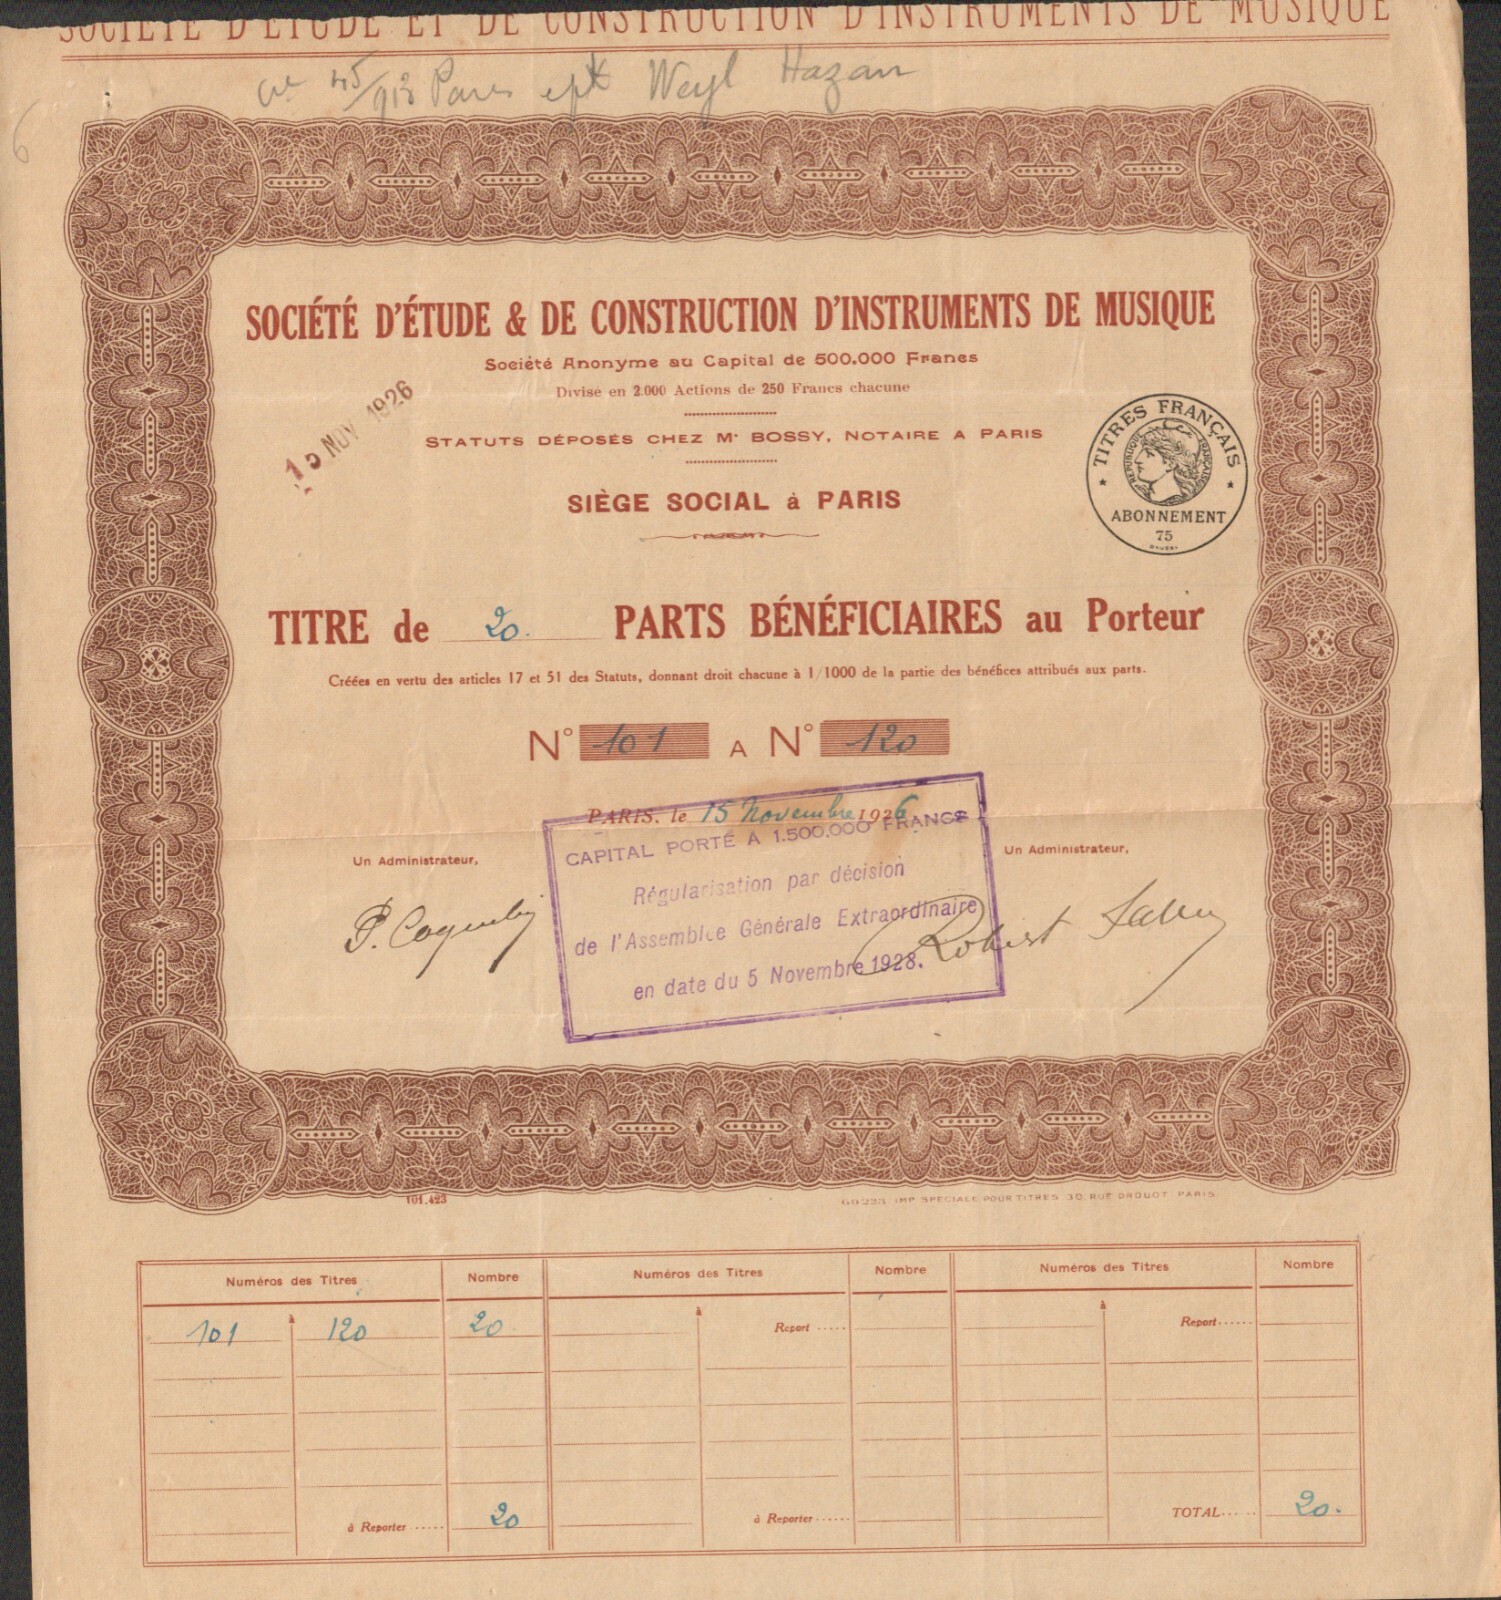 SOCIETE D'ETUDE ET DE CONSTRUCTION D'INSTRUMENTS DE MUSIQUE
Paris Weyl Hazan
6
SOCIÉTÉ D'ÉTUDE & DE CONSTRUCTION D'INSTRUMENTS DE MUSIQUE
Société Anonyme au Capital de 500.000 Francs
Divisé en 2.000 Actions de 250 Francs chacune
15 NOV 1926
STATUTS DÉPOSÉS CHEZ Me BOSSY, NOTAIRE A PARIS
TITRES FRANÇAIS
RÉPUBLIQUE FRANÇAISE
ABONNEMENT
75
SIÈGE SOCIAL à PARIS
TITRE de 20. PARTS BÉNÉFICIAIRES au Porteur
Créées en vertu des articles 17 et 51 des Statuts, donnant droit chacune à 1/1000 de la partie des bénéfices attribués aux parts.
N° 101 A N° 120
PARIS, le 15 Novembre 1926
CAPITAL PORTÉ A 1.500.000 FRANCS
Régularisation par décision
de l'Assemblée Générale Extraordinaire
en date du 5 Novembre 1928.
Un Administrateur,
Un Administrateur,
Robert
101.423
60223 IMP SPECIALE POUR TITRES 30 RUE DROUOT PARIS
Numéros des Titres Nombre Numéros des Titres Nombre Numéros des Titres Nombre
101 à 120 20 à Report ..... à Report ......
à Reporter ..... 20 à Reporter ...... TOTAL ..... 20.